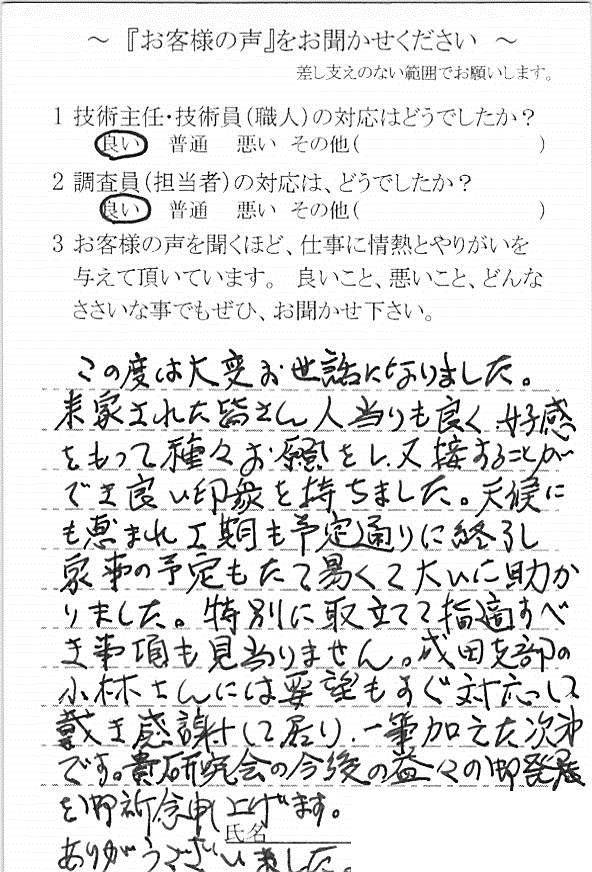 ～『お客様の声』をお聞かせください ～
差し支えのない範囲でお願いします。
1 技術主任・技術員(職人)の対応はどうでしたか？
良い 普通 悪い その他( )
2 調査員(担当者)の対応は、どうでしたか？
良い 普通 悪い その他( )
3 お客様の声を聞くほど、仕事に情熱とやりがいを
与えて頂いています。 良いこと、悪いこと、どんな
ささいな事でもぜひ、お聞かせ下さい。
この度は大変お世話になりました。
来家された皆さん人当りも良く好感
をもって種々お願をし、又接することが
でき良い印象を持ちました。天候に
も恵まれ工期も予定通りに終了し
家事の予定もたて易くて大いに助か
りました。特別に取立てて指摘すべ
き事項も見当りません。成田支部の
小林さんには要望もすぐ対応して
戴き感謝して居り、一筆加えた次第
です。貴研究会の今後の益々の御発展
を御祈念申し上げます。
氏名
ありがうございました。